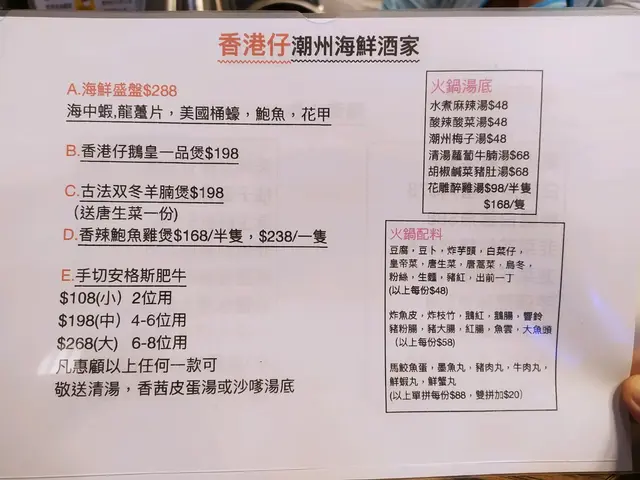 香港仔潮州海鮮酒家
A.海鮮盛盤$288
海中蝦,龍躉片，美國桶蠔，鮑魚，花甲
B.香港仔鵝皇一品煲$198
C.古法双冬羊腩煲$198
(送唐生菜一份)
D.香辣鮑魚雞煲$168/半隻，$238/一隻
E.手切安格斯肥牛
$108(小）2位用
$198(中）4-6位用
$268(大）6-8位用
凡惠顧以上任何一款可
敬送清湯，香茜皮蛋湯或沙嗲湯底
火鍋湯底
水煮麻辣湯$48
酸辣酸菜湯$48
潮州梅子湯$48
清湯蘿蔔牛腩湯$68
胡椒鹹菜豬肚湯$68
花雕醉雞湯$98/半隻
$168/隻
火鍋配料
豆腐，豆卜，炸芋頭，白菜仔，
皇帝菜，唐生菜，唐萵菜，烏冬，
粉絲，生麵，豬紅，出前一丁
(以上每份$48)
炸魚皮，炸枝竹，鵝紅，鵝腸，響鈴
豬粉腸，豬大腸，紅腸，魚雲，大魚頭
（以上每份$58)
馬鮫魚蛋，墨魚丸，豬肉丸，牛肉丸，
鮮蝦丸，鮮蟹丸
(以上單拼每份$88，雙拼加$20）